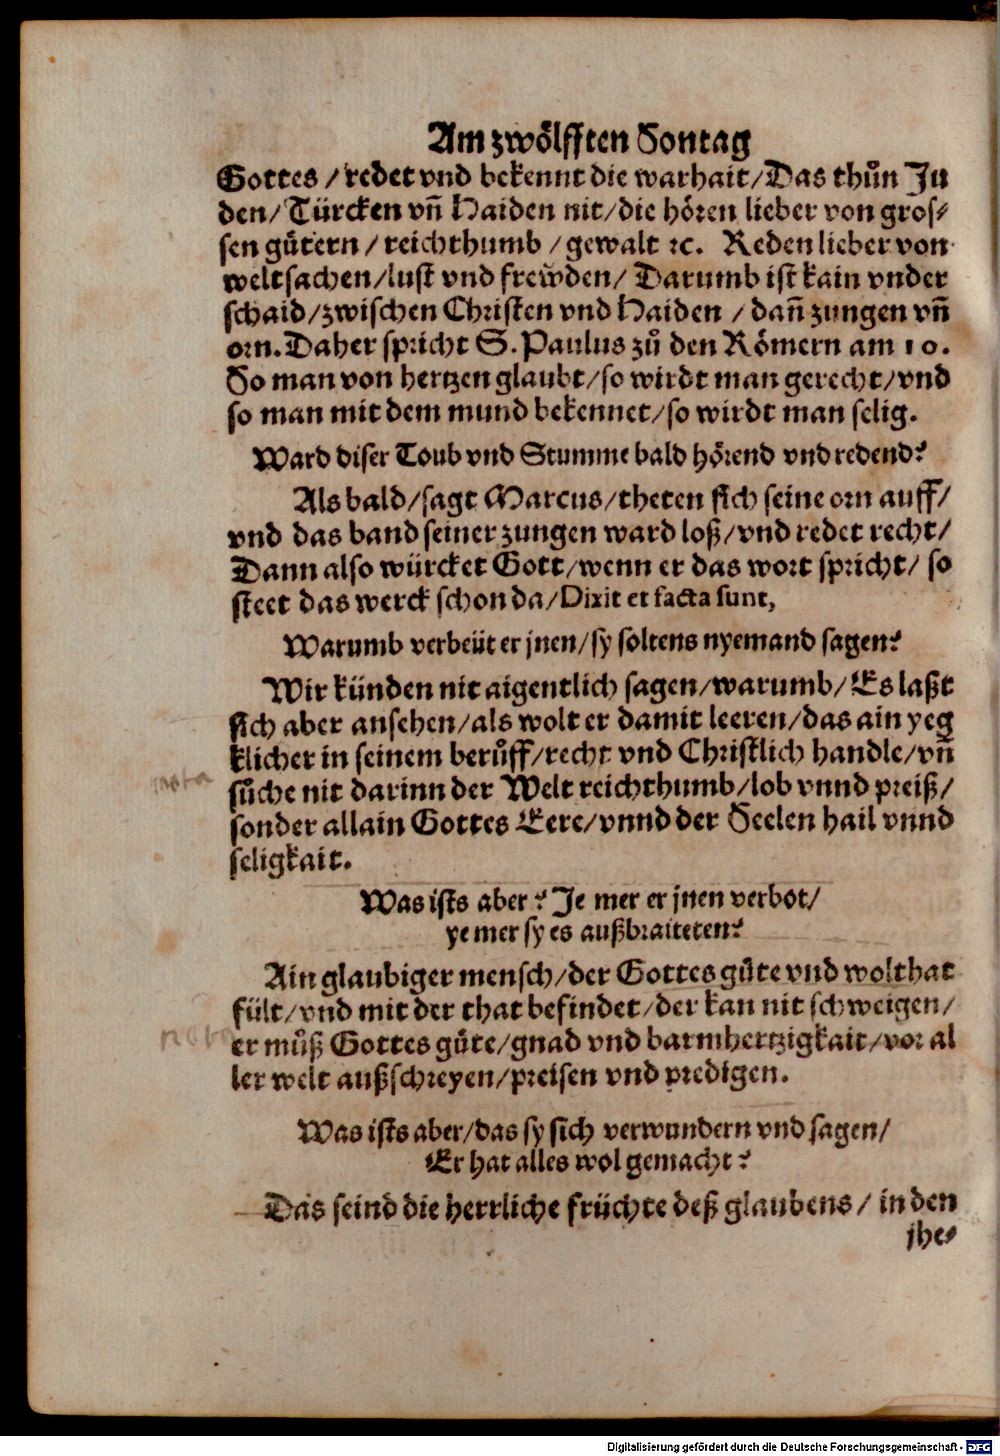 Am zwoͤlfften Sontag
Gottes / redet vnd bekennt die warhait/Das thuͦn Ju
den/ Türcken vñ Haiden nit/die hoͤren lieber von gros⸗
sen guͤtern / reichthumb /gewalt ꝛc. Reden lieber von
weltsachen/lust vnd frewden/ Darumb ist kain vnder
schaid/zwischen Christen vnd Haiden / dañ zungen vñ
orn. Daher spricht S. Paulus zuͦ den Roͤmern am 10.
So man von hertzen glaubt/so wirdt man gerecht/vnd
so man mit dem mund bekennet/so wirdt man selig.
Ward diser Toub vnd Stumme bald hoͤrend vnd redend?
Als bald/sagt Marcus/theten sich seine orn auff/
vnd das band seiner zungen ward loß/vnd redet recht/
Dann also würcket Gott/wenn er das wort spricht/ so
steet das werck schon da/Dixit et facta sunt,
Warumb verbeüt er jnen/sy soltens nyemand sagen?
Wir künden nit aigentlich sagen/warumb/Es laßt
sich aber ansehen/als wolt er damit leeren/das ain yeg
klicher in seinem beruͦff/recht vnd Christlich handle/vñ
nota
suͦche nit darinn der Welt reichthumb/lob vnnd preiß/
sonder allain Gottes Eere/vnnd der Seelen hail vnnd
seligkait.
Was ists aber? Je mer er jnen verbot/
ye mer sy es außbraiteten?
Ain glaubiger mensch/der Gottes guͤte vnd wolthat
fült/vnd mit der that befindet/der kan nit schweigen/
nota
er muͦß Gottes guͤte/gnad vnd barmhertzigkait/vor al
ler welt außschreyen/preisen vnd predigen.
Was ists aber/das sy sich verwundern vnd sagen/
Er hat alles wol gemacht?
Das seind die herrliche früchte deß glaubens/ in den
jhe⸗
Digitalisierung gefördert durch die Deutsche Forschungsgemeinschaft - DFG